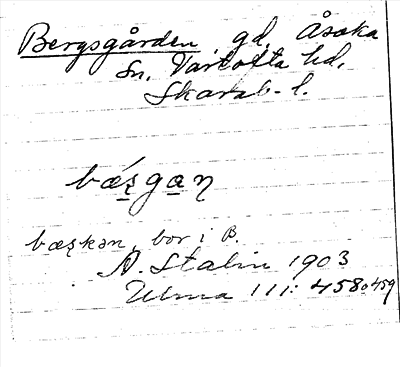 Bergsgården, gd, Åsaka
Sn, Vartofta hd,
Skarab. l.
bǽʂgaŋ
bæʂkən, bor i B.
A. Stalin 1903
Ulma 111: 458o459